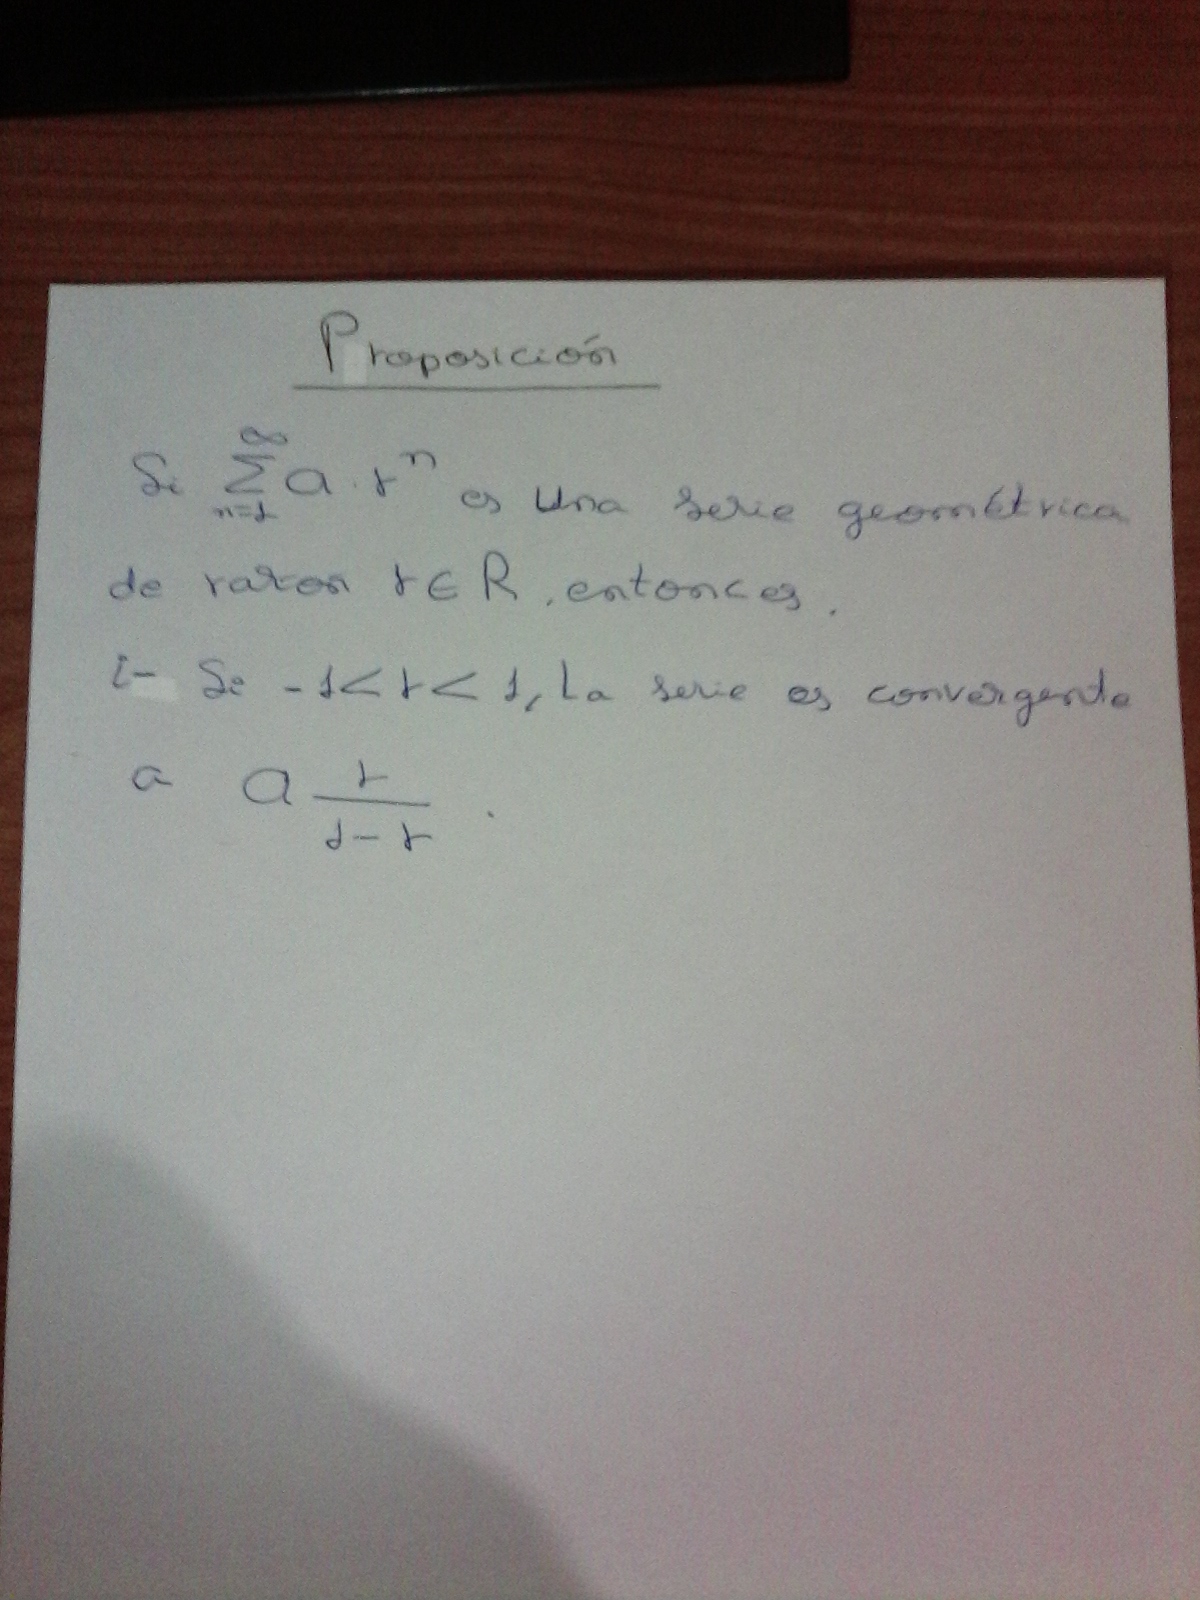 Proposición
Si ∑_{n=1}^{∞} a · r^n es una serie geométrica
de razon r ∈ R, entonces.
i- Si -1 < r < 1, La serie es convergente
a a r/(1-r) .